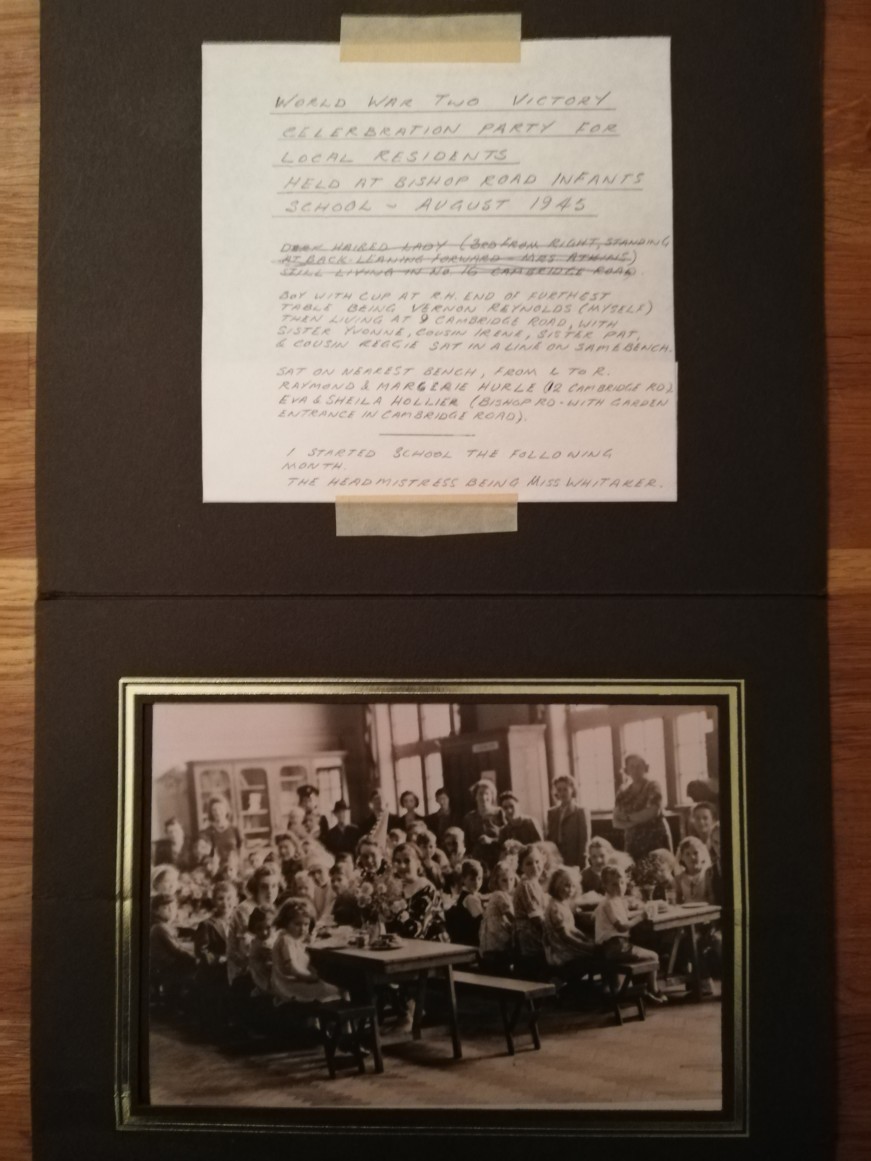 WORLD WAR TWO VICTORY
CELERBRATION PARTY FOR
LOCAL RESIDENTS
HELD AT BISHOP ROAD INFANTS
SCHOOL - AUGUST 1945
DARK HAIRED LADY (3RD FROM RIGHT, STANDING
AT BACK LEANING FORWARD - MRS ATHINS)
STILL LIVING IN NO 16 CAMBRIDGE ROAD.
BOY WITH CUP AT R.H. END OF FURTHEST
TABLE BEING VERNON REYNOLDS (MYSELF)
THEN LIVING AT 9 CAMBRIDGE ROAD, WITH
SISTER YVONNE, COUSIN IRENE, SISTER PAT,
& COUSIN REGGIE SAT IN A LINE ON SAME BENCH.
SAT ON NEAREST BENCH, FROM L TO R.
RAYMOND & MARGERAIE HURLE (12 CAMBRIDGE RD)
EVA & SHEILA HOLLIER (BISHOP RD - WITH GARDEN
ENTRANCE IN CAMBRIDGE ROAD).
I STARTED SCHOOL THE FOLLOWING
MONTH.
THE HEADMISTRESS BEING MISS WHITAKER.